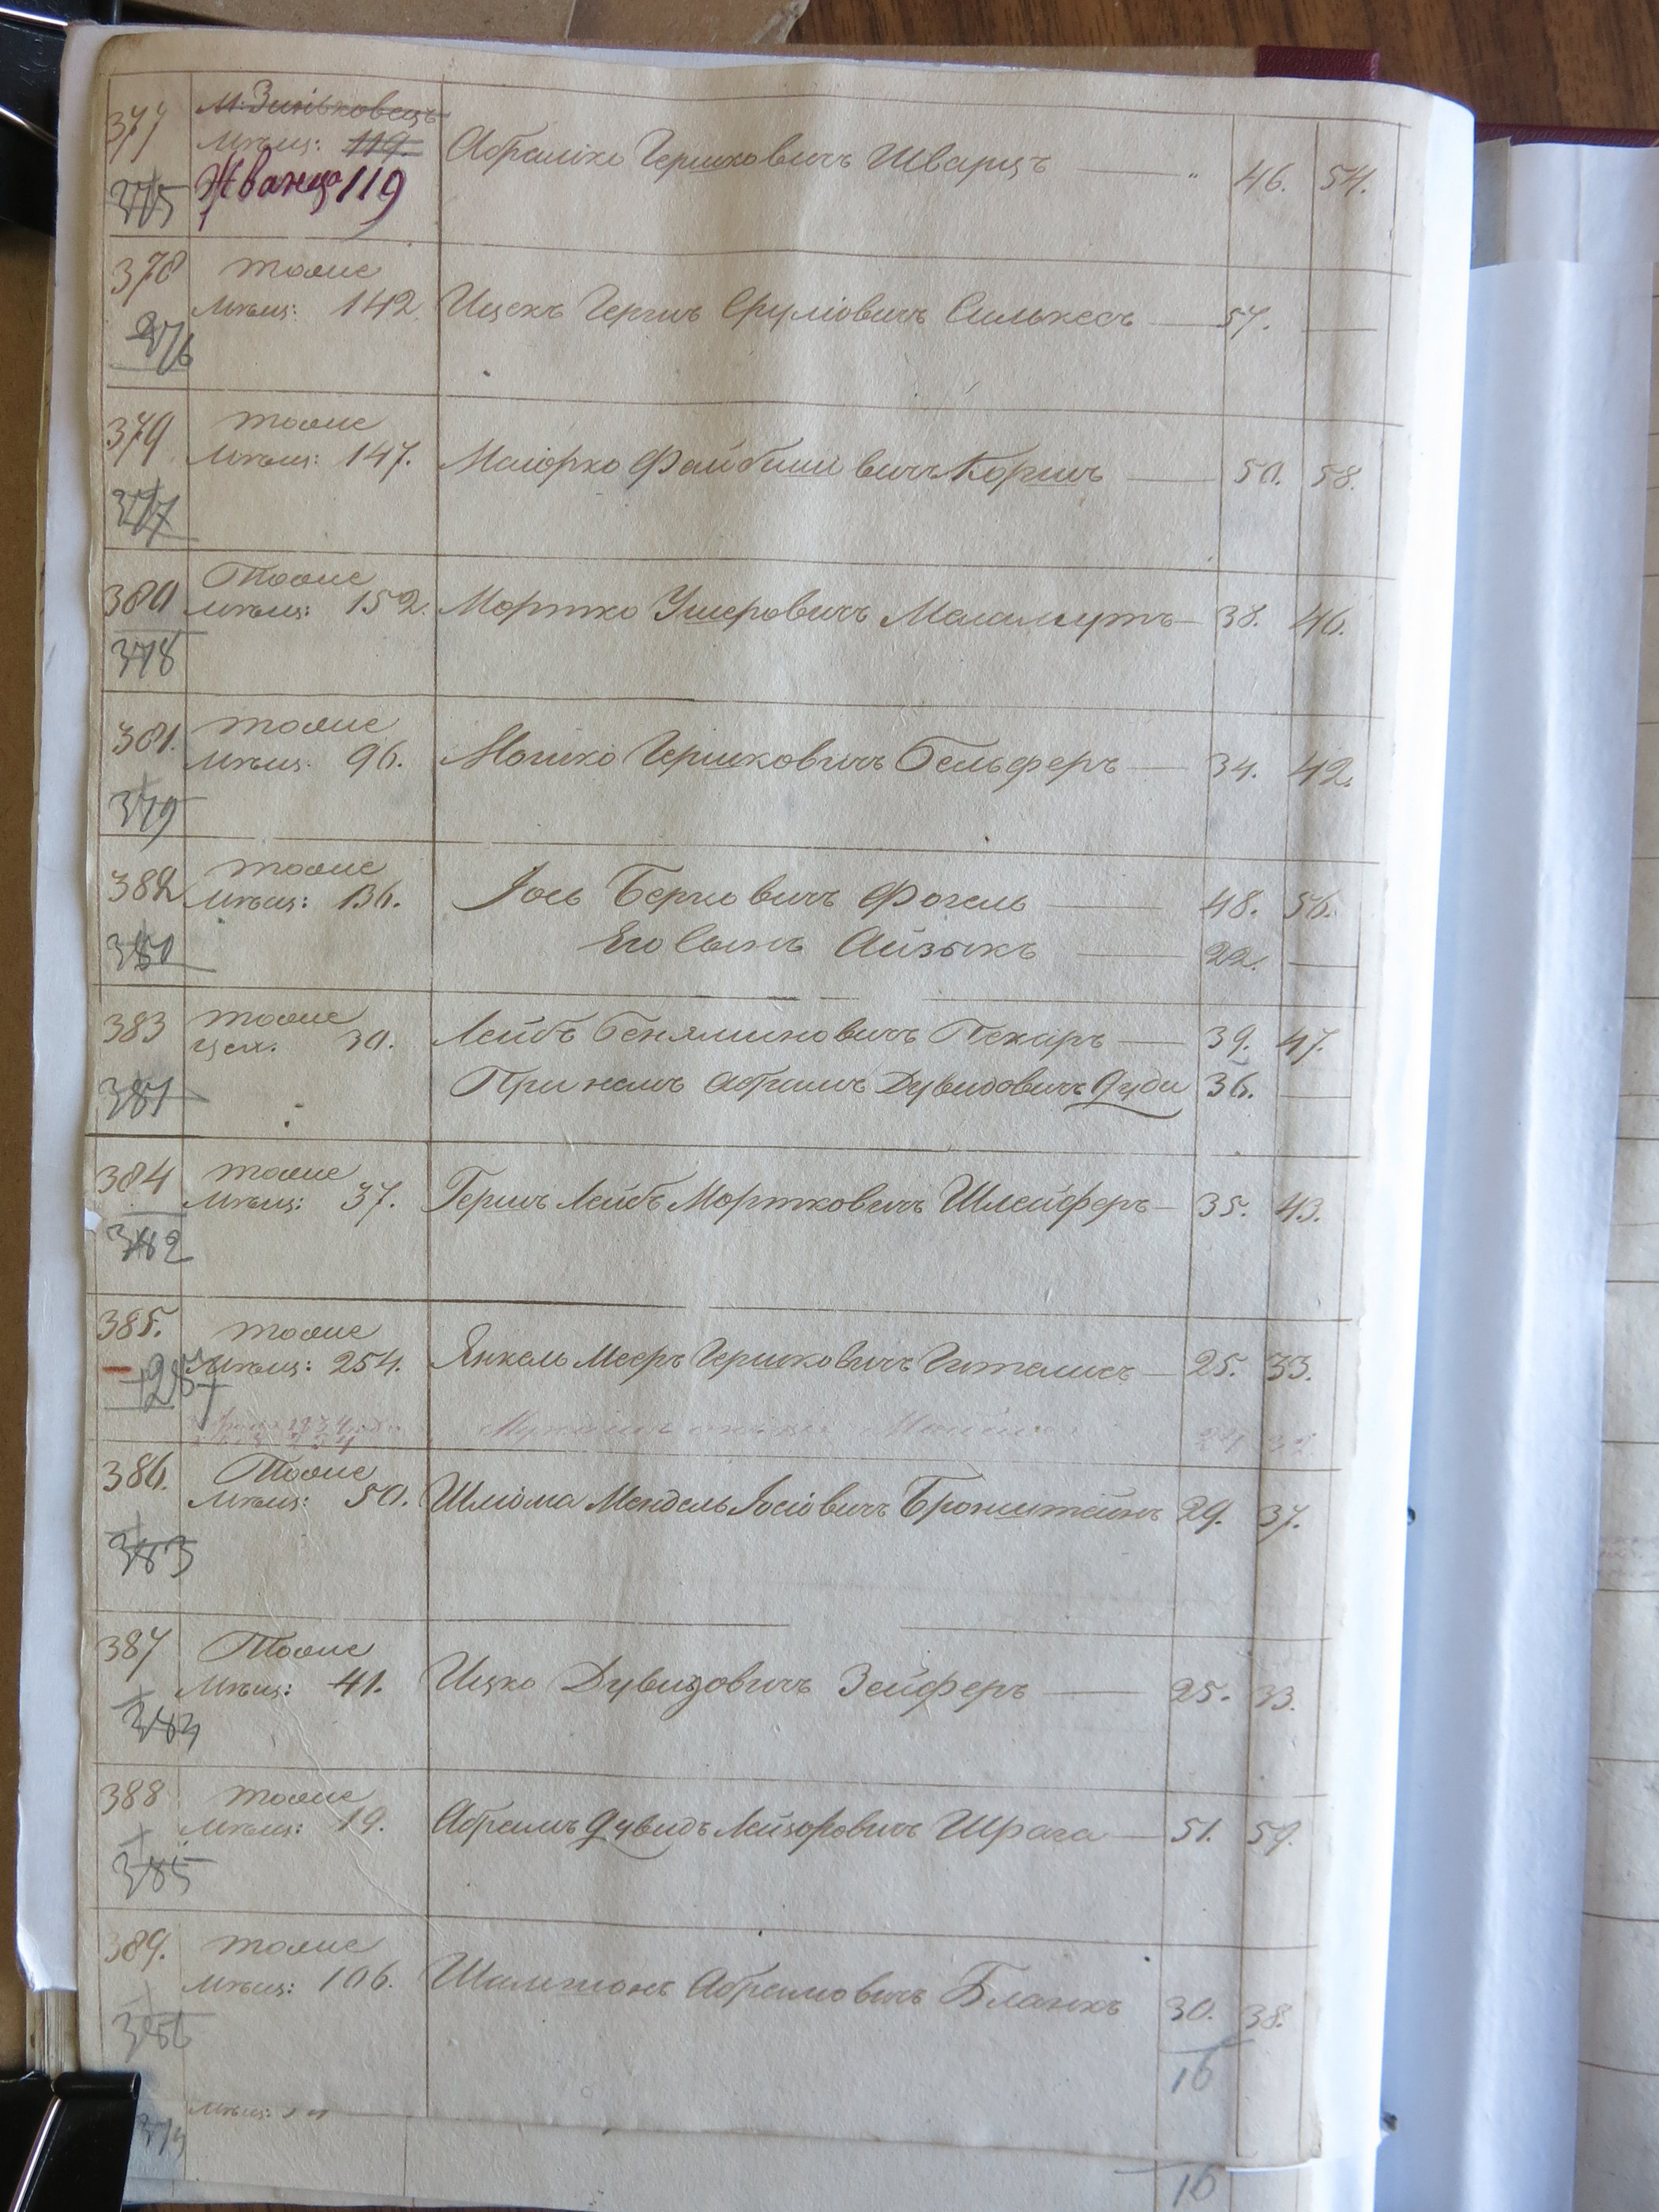 377 м. Зиньковецъ
мѣщ: 119.
375 Жванца 119 Абрашко Гершковичъ Шварцъ — " 46. 54.
378 тоже
мѣщ: 142. Ицекъ Гершъ Сруліовичъ Силькесъ — 57. —
376
379 тоже
мѣщ: 147. Маіорко Файбишовичъ Коршъ — 50. 58.
377
380 Тоже
мѣщ: 152. Мортко Ушеровичъ Маламутъ — 38. 46.
378
381. тоже
мѣщ. 96. Мошко Гершковичъ Бельферъ — 34. 42.
379
382 тоже
мѣщ: 136. Іось Берковичъ Фогель — 48. 56.
Его Сынъ Айзыкъ — 22. —
380
383 тоже
цех. 30. Лейбъ Беняминовичъ Пекаръ — 39. 47.
Абрамъ Дувидовичъ 36. —
381
384 тоже
мѣщ: 37. Гершъ Лейбъ Мортковичъ Шлейферъ — 35. 43.
382
385. тоже
мѣщ: 254. Янкель Мееръ Гершковичъ Гиталисъ — 25. 33.
386. Тоже
мѣщ: 50. Шліома Мендель Іосіовичъ Бронштейнъ 29. 37.
383
387 Тоже
мѣщ: 41. Ицко Дувидовичъ Зейферъ — 25. 33.
384
388 тоже
мѣщ: 19. Абрамъ Дувидъ Лейзоровичъ Шрага — 51. 59.
385
389. тоже
мѣщ: 106. Шамшонъ Абрамовичъ Бланкъ 30. 38.
386
16
мѣщ:
16